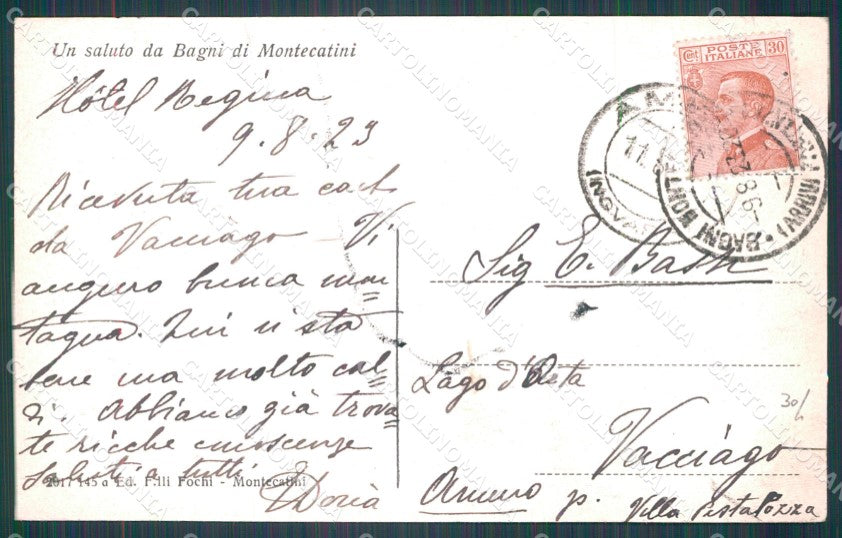 Un saluto da Bagni di Montecatini
Hôtel Regina
9.8.23
Ricevuta tua cart
da Vacciago Vi
auguro buona mon=
tagna. Qui si sta
bene ma molto cal=
di. Abbiamo già trova=
te ricche conoscenze
Saluti a tutti
Doria
2017 145 a Ed. F.lli Fochi - Montecatini
POSTE ITALIANE
Cent. 30
BAGNI MONTE
(ARRIVI
11
Sig E.
Lago d'Orta
Vacciago
Ameno p. Villa Pestalozza
30/
CARTOLINOMANIA